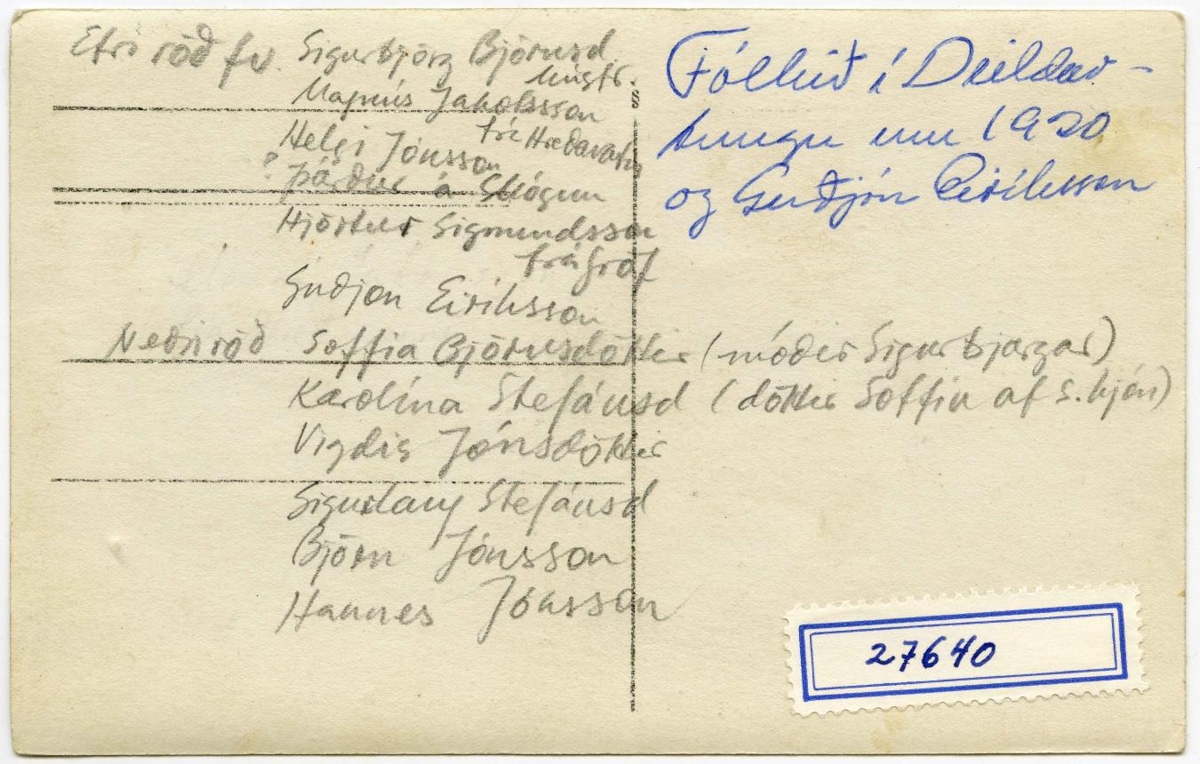 Efri röð fv. Sigurbjörg Björnsd
Magnús Jakobsson
Helgi Jónsson frá Hreðavatni
? Þórður á Skógum
Hjörtur Sigmundsson
frá Gröf
Guðjón Eiríksson
Neðri röð Soffía Björnsdóttir (móðir Sigurbjargar)
Karólína Stefánsd (dóttir Soffíu af s. hjón)
Vigdís Jónsdóttir
Sigurlaug Stefánsd
Björn Jónsson
Hannes Jónsson
Fólkið í Deildar-
tungu um 1920
og Guðjón Eiríksson
27640